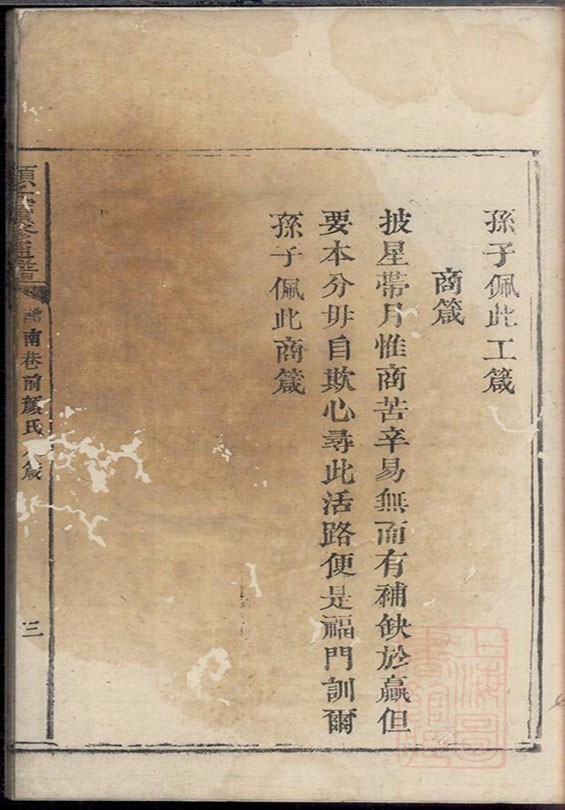 孫子佩此工箴
商箴
披星帶月惟商苦辛易無而有補缺於贏但
要本分毋自欺心尋此活路便是福門訓爾
孫子佩此商箴
南巷前顏氏
三
上海圖書館藏